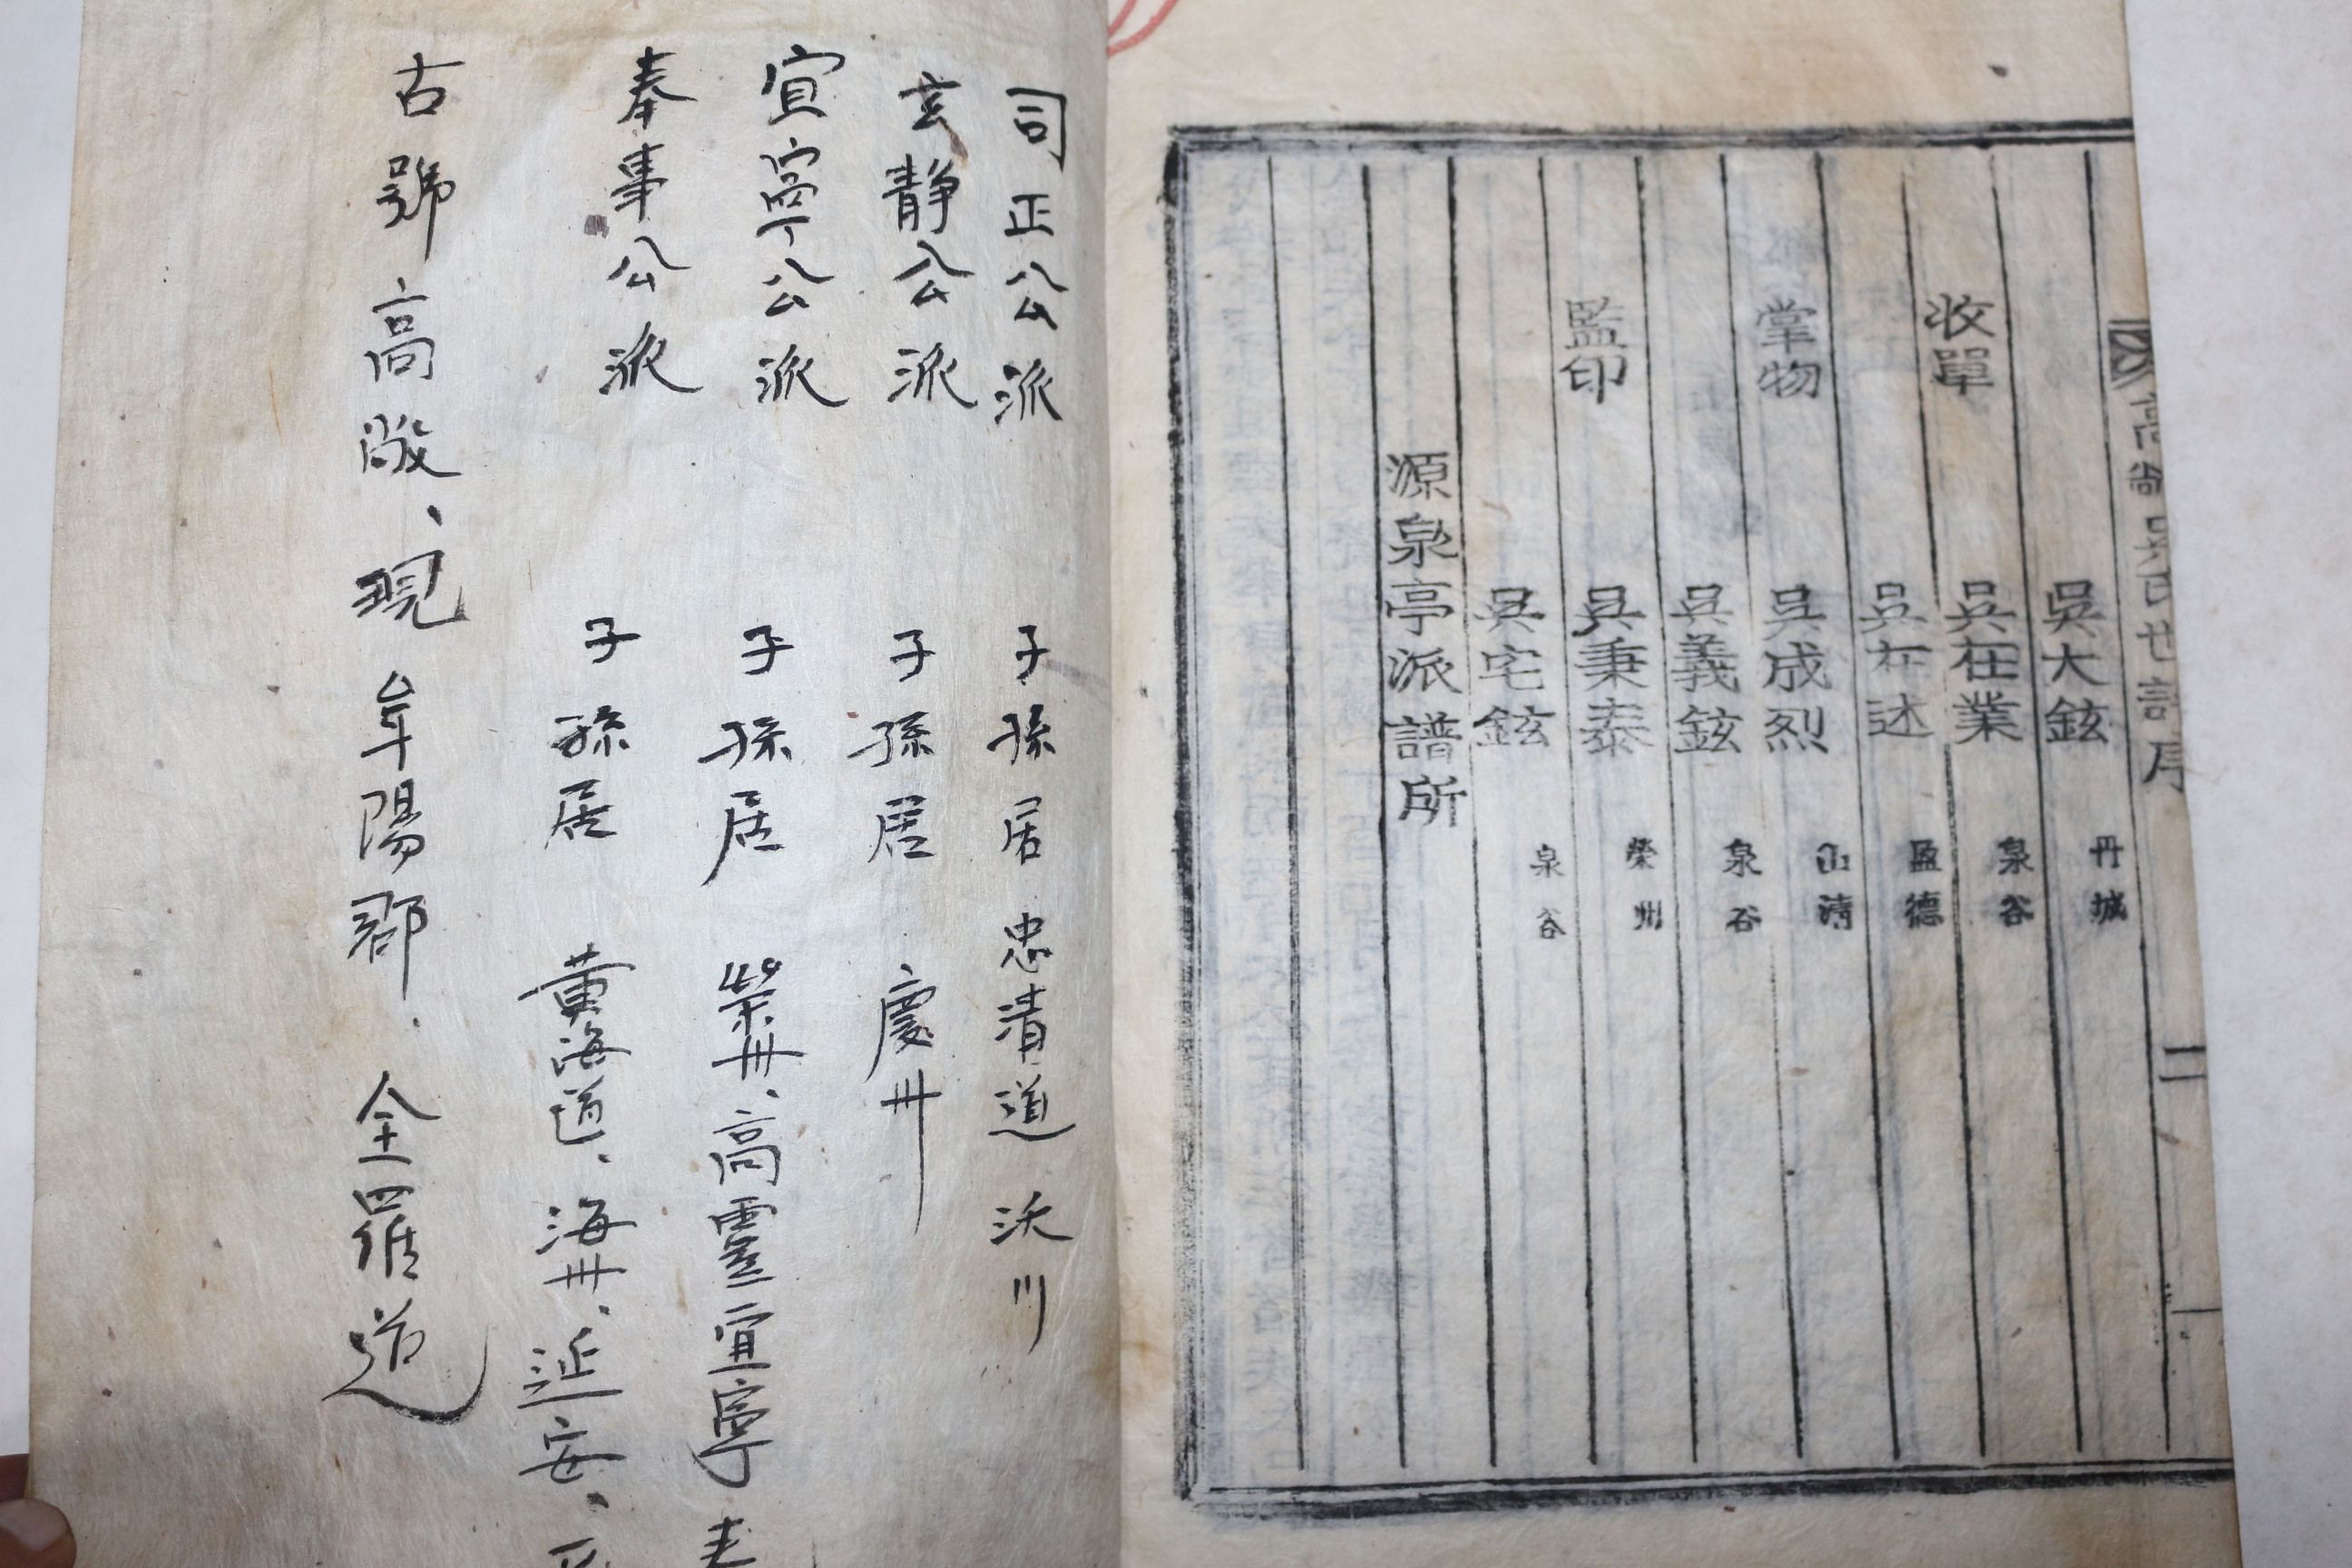 高敞吳氏世譜序
二
吳大鉉 丹城
收單 吳在業 泉谷
吳在述 盈德
掌物 吳成烈 山淸
吳義鉉 泉谷
監印 吳秉泰 榮州
吳宅鉉 泉谷
源泉亭派譜所
司正公派 子孫居 忠淸道 沃川
玄靜公派 子孫居 慶州
宜寧公派 子孫居 榮州、高靈宜寧
奉事公派 子孫居 黃海道、海州、延安、
古號高敞、現牟陽郡. 全羅道